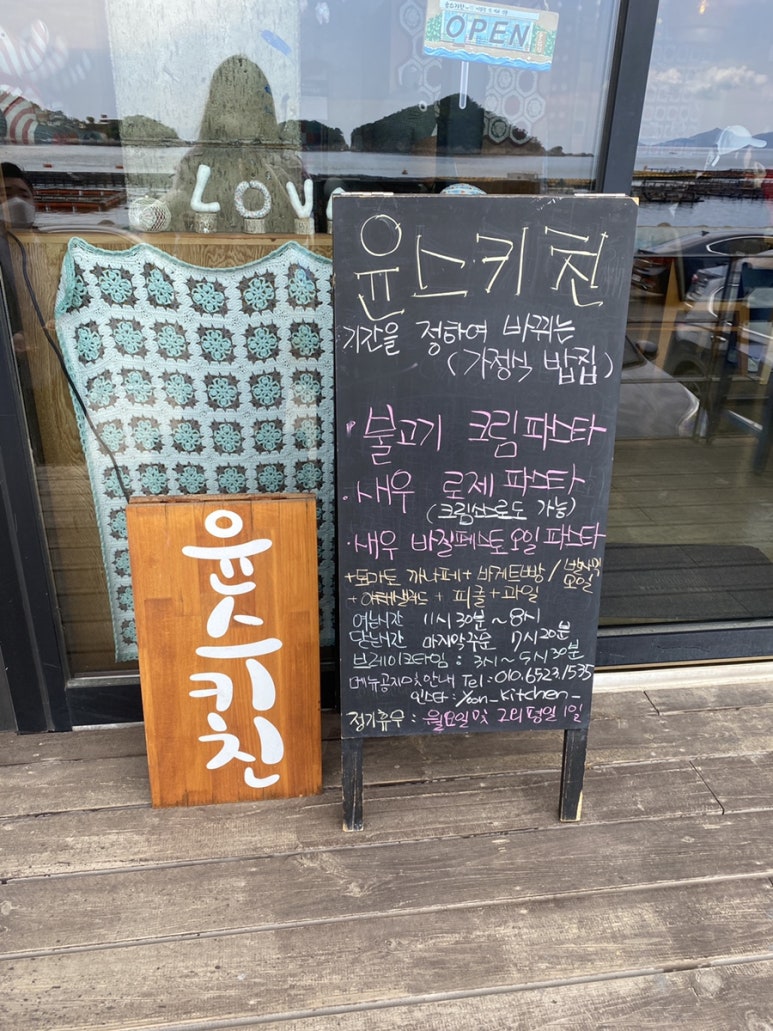 OPEN
LOVE
윤스키친
기간을 정하여 바뀌는
(가정식 밥집)
·불고기 크림파스타
·새우 로제 파스타
(크림소스로도 가능)
·새우 바질페스토 오일 파스타
+토마토 까나페 + 바게트빵/
오일
+ 야채샐러드 + 피클 + 과일
여는시간 11시 30분 ~ 8시
닫는시간 마지막주문 7시 20분
브레이크타임 : 3시 ~ 5시 30분
메뉴공지및안내 Tel : 010.6523.1535
인스타 : Yoon_kitchen_
정기휴무 : 월요일 및 그외 평일 1일
윤스키친